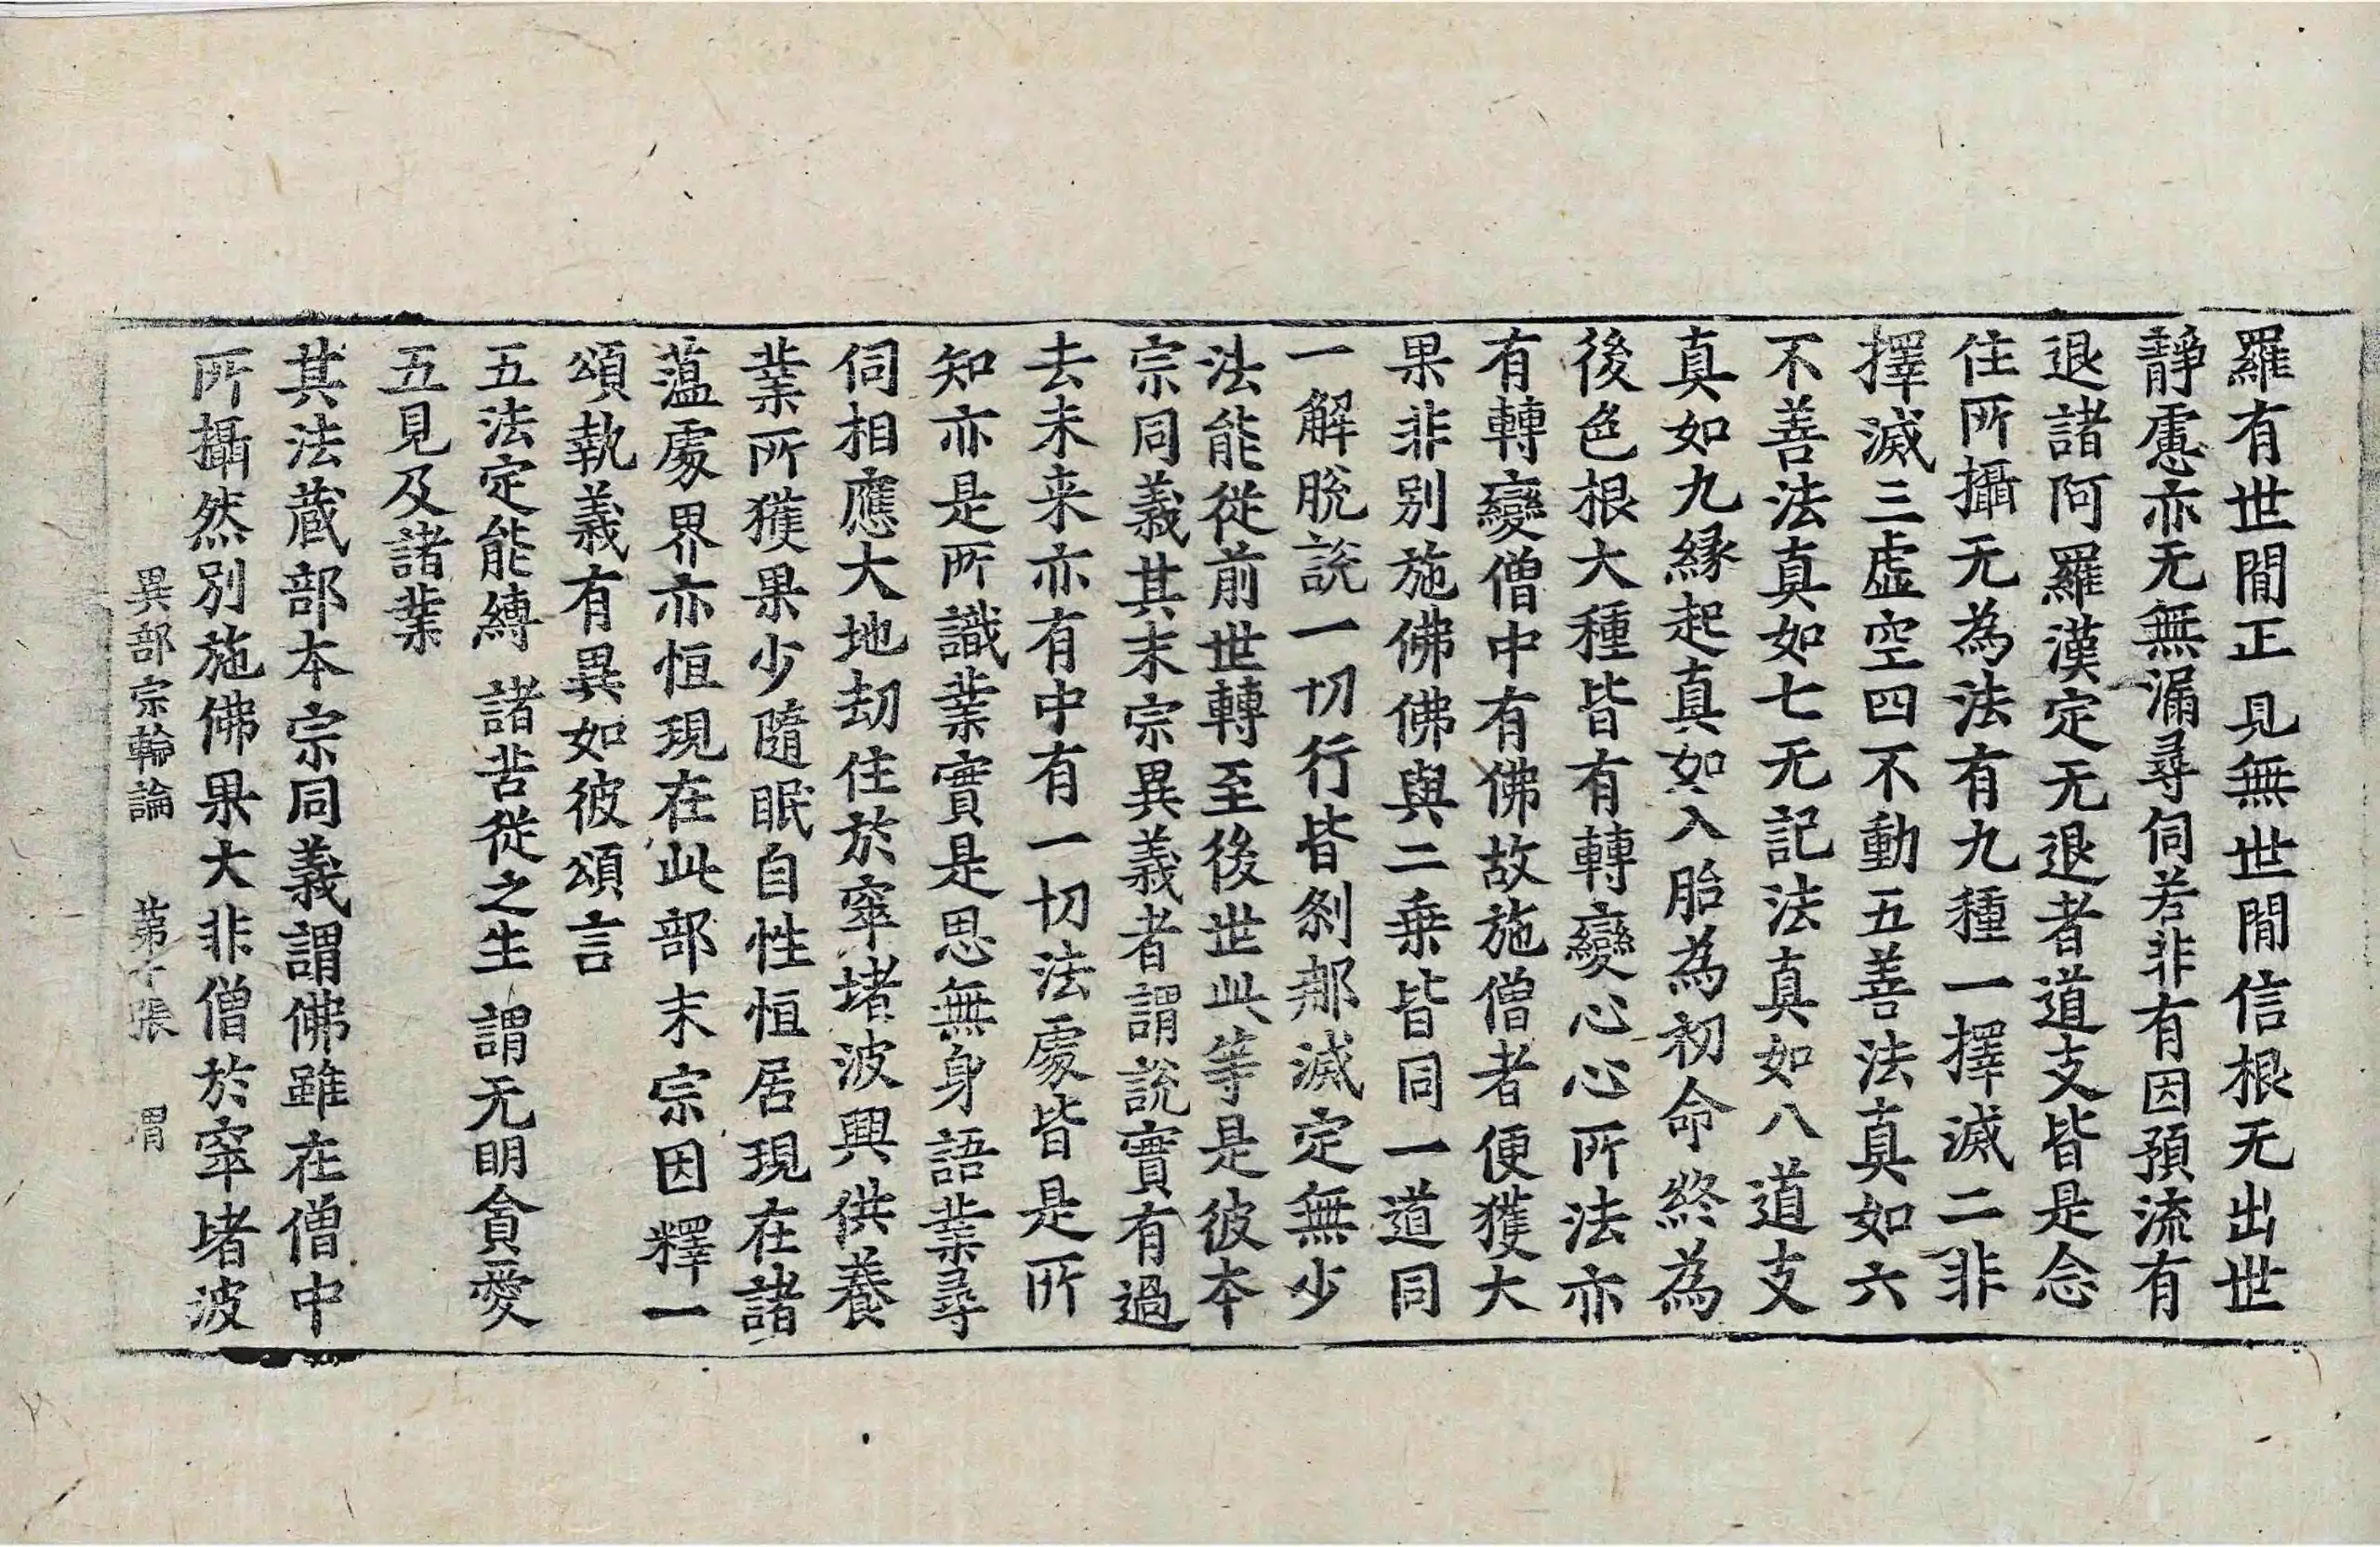 羅有世閒正見無世閒信根无出世
靜慮亦无無漏尋伺若非有因預流有
退諸阿羅漢定无退者道支皆是念
住所攝无為法有九種一擇滅二非
擇滅三虛空四不動五善法真如六
不善法真如七无記法真如八道支
真如九緣起真如入胎為初命終為
後色根大種皆有轉變心心所法亦
有轉變僧中有佛故施僧者便獲大
果非別施佛佛與二乗皆同一道同
一解脫說一切行皆剎那滅定無少
法能從前世轉至後世此等是彼本
宗同義其末宗異義者謂說實有過
去未来亦有中有一切法處皆是所
知亦是所識業實是思無身語業尋
伺相應大地劫住於窣堵波興供養
業所獲果少隨眠自性恒居現在諸
薀處界亦恒現在此部末宗因釋一
頌執義有異如彼頌言
五法定能縛 諸苦從之生 謂无明貪愛
五見及諸業
其法蔵部本宗同義謂佛雖在僧中
所攝然別施佛果大非僧於窣堵波
異部宗輪論 第十張 渭